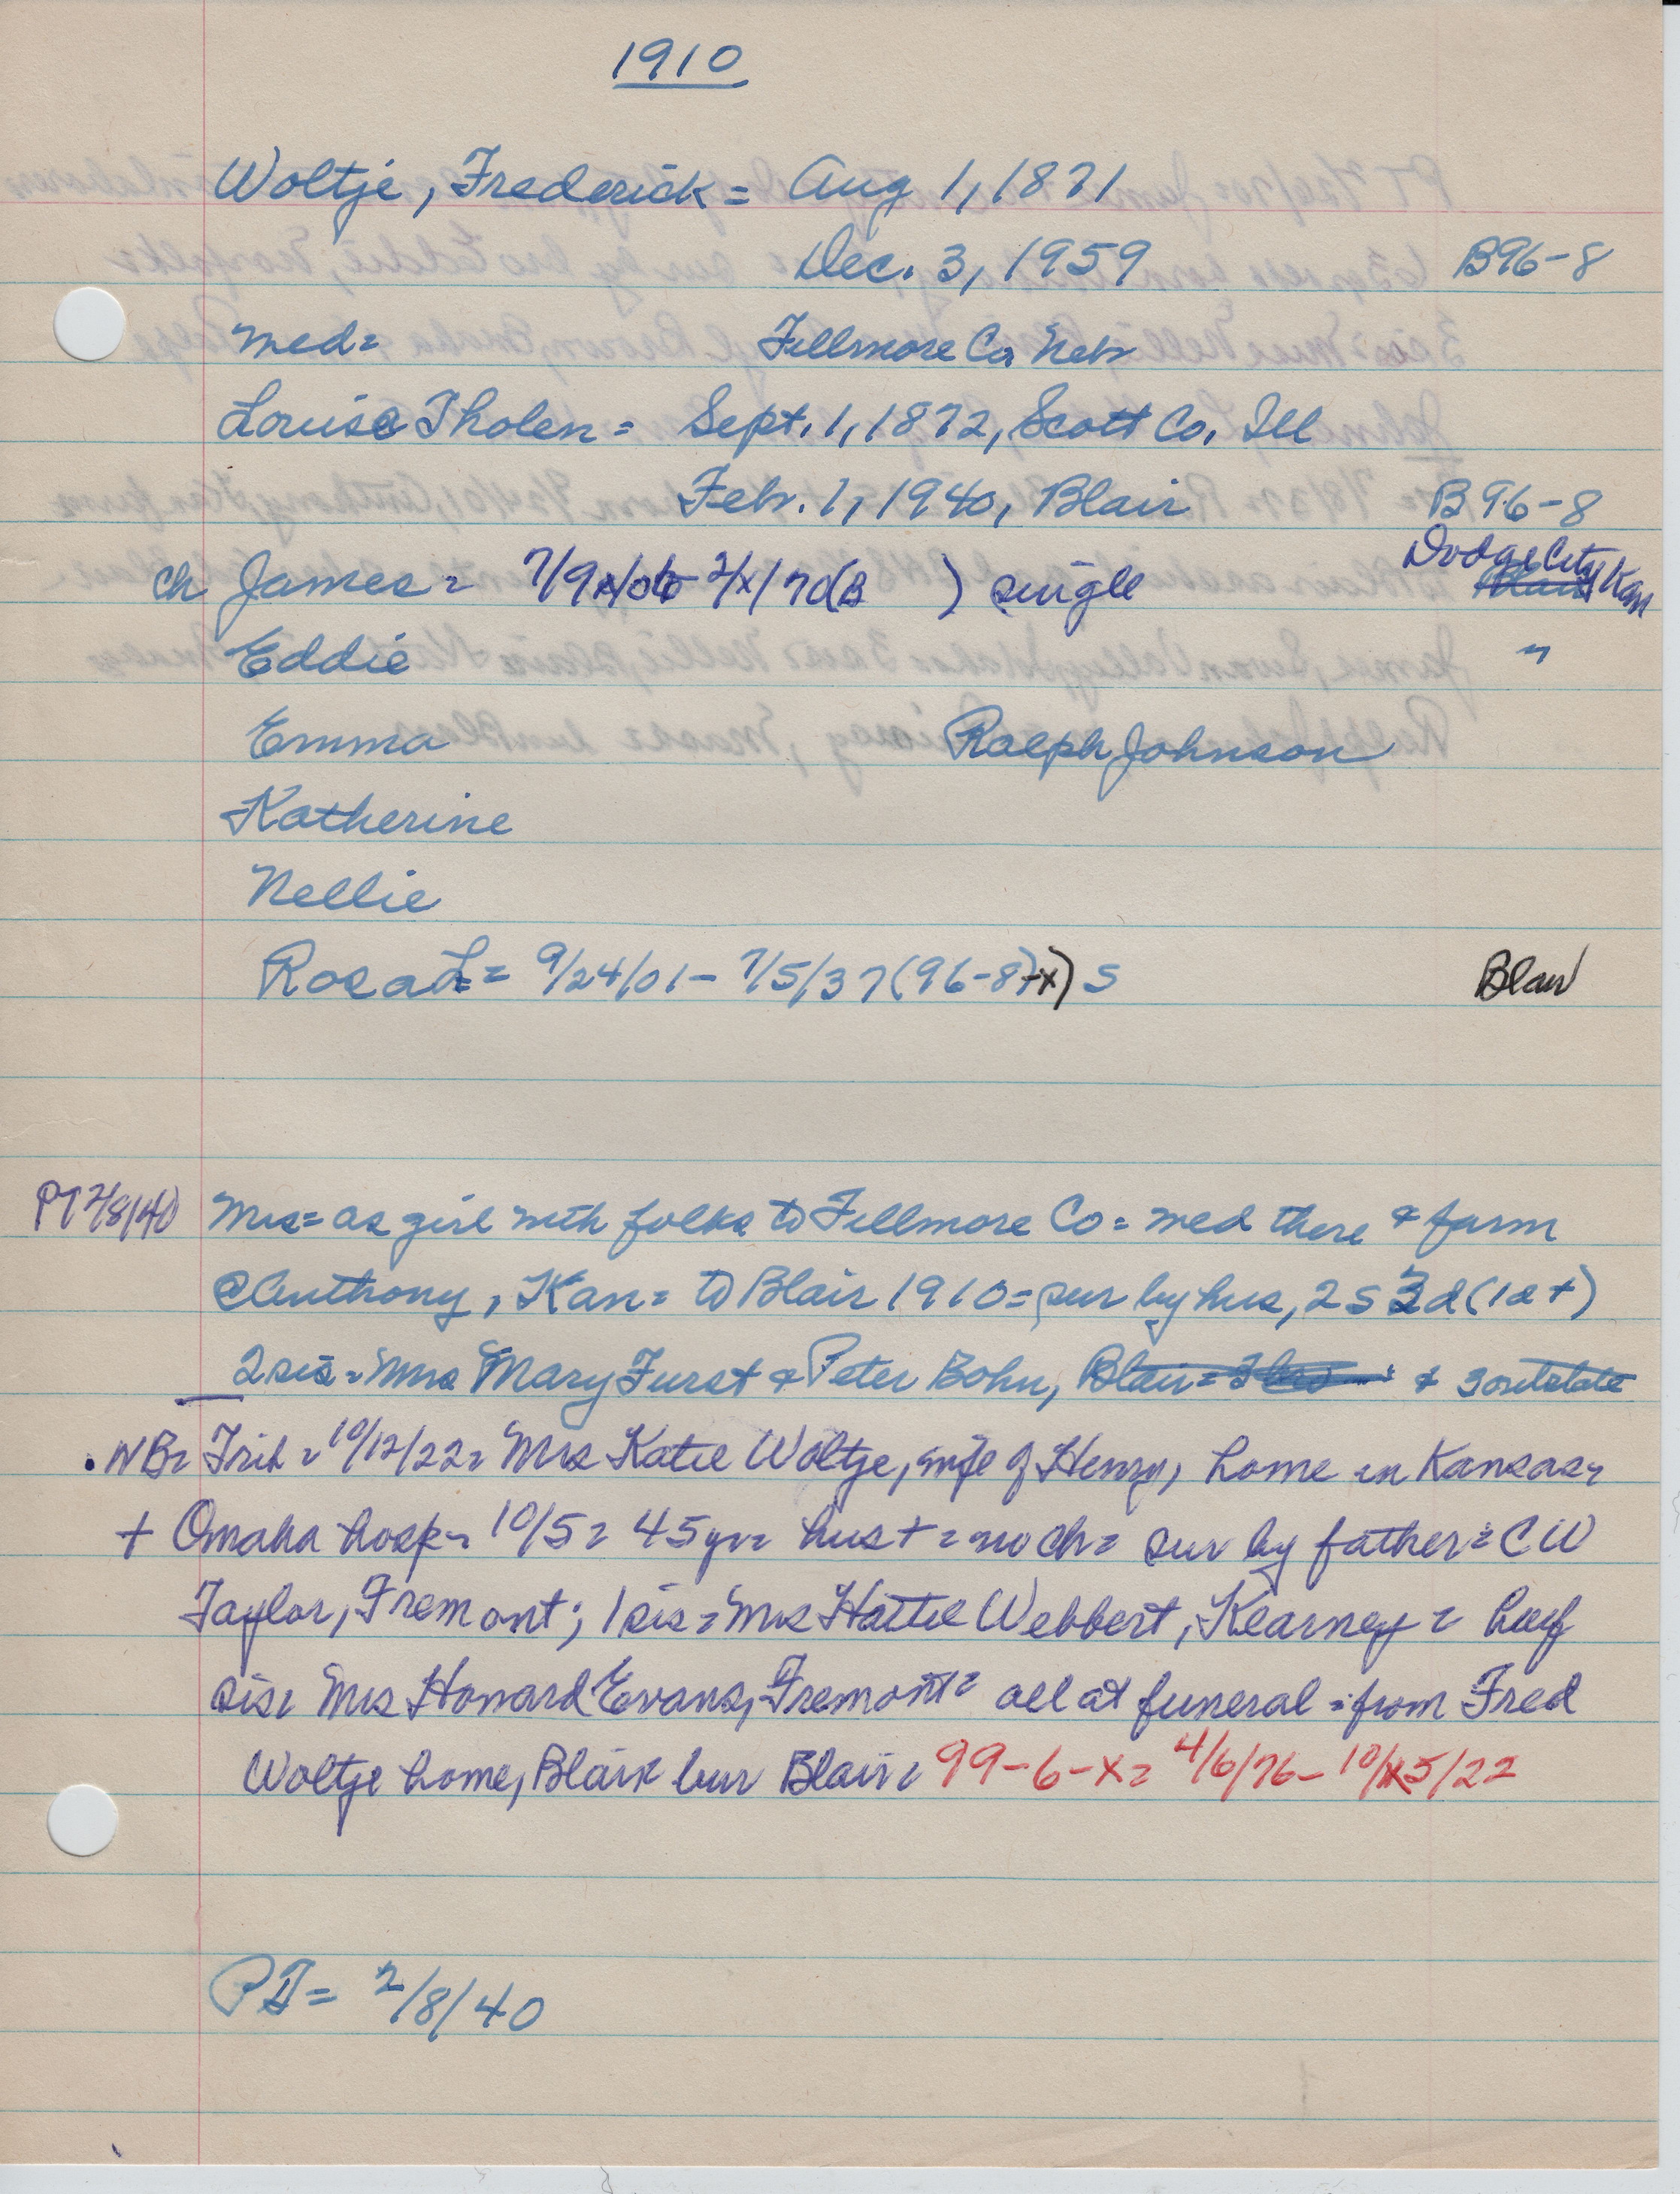 1910
Woltje, Frederick = Aug 1, 1871
Dec. 3, 1959 B96-8
med= Fillmore Co. Neb
Louise Tholen = Sept. 1, 1872, Scott Co. Ill
Feb. 1, 1940, Blair B96-8
Dodge City Kan
ch James = 7/9 2/x/70(B ) single
Eddie "
Emma Ralph Johnson
Katherine
Nellie
Rosa L = 9/24/01 - 7/5/37 (96-8)-x) S Blair
PT 2/8/40 Mrs = as girl with folks to Fillmore Co = med there & farm
@ Anthony, Kan = to Blair 1910 = sur by hus, 2 s 3 d (1 d +)
2 sis = Mrs Mary Furst & Peter Bohn, Blair = & 3 outstate
. NB= Trib = 10/12/22 = Mrs Katie Woltje, wife of Henry, home in Kansas =
+ Omaha hosp = 10/5 = 45 yr = hus + = no ch = sur by father = C W
Taylor, Fremont; 1 sis = Mrs Hattie Webbert, Kearney = half
sis = Mrs Howard Evans, Fremont = all at funeral = from Fred
Woltje home, Blair bur Blair = 99-6-x = 4/6/76 - 10/5/22
PT = 2/8/40